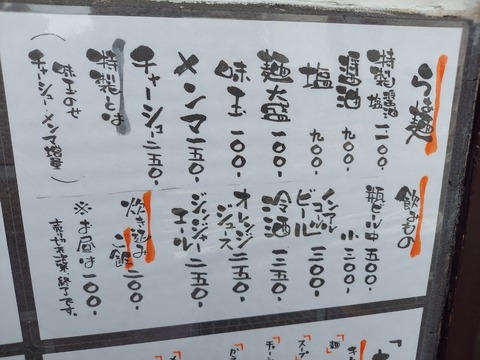 らぁ麺
特製醤油
塩 一一〇〇-
醤油 九〇〇-
塩 九〇〇-
麺大盛 一〇〇-
味玉 一〇〇-
メンマ 一五〇-
チャーシュー 二五〇-
特製とは
(味玉のせ
チャーシュー・メンマ増量)
飲みもの
瓶ビール 中 五〇〇-
小 三〇〇-
ノンアルコール
ビール 三〇〇-
冷酒 三五〇-
オレンジ
ジュース 二五〇-
ジンジャー
エール 二五〇-
炊き込み
ご飯 二〇〇-
※お昼は一〇〇-
売切れ次第終了です。
「麺
「スープ
「チャー